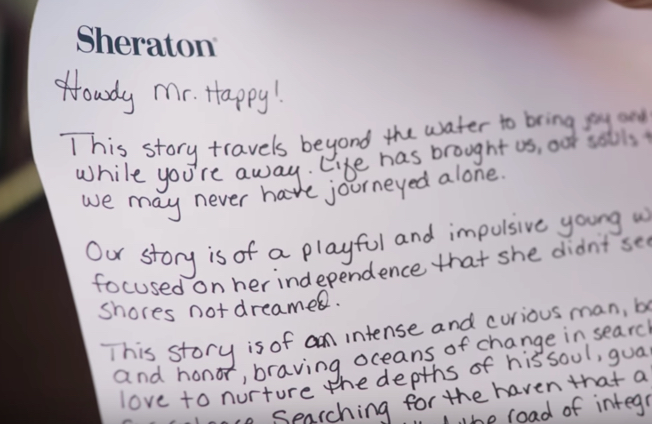 Sheraton
Howdy Mr. Happy!
This story travels beyond the water to bring joy and
while you're away. Life has brought us, our souls
we may never have journeyed alone.
Our story is of a playful and impulsive young
focused on her independence that she didn't see
shores not dreamed.
This story is of an intense and curious man,
and honor, braving oceans of change in search
love to nurture the depths of his soul,
Searching for the haven that a
the road of